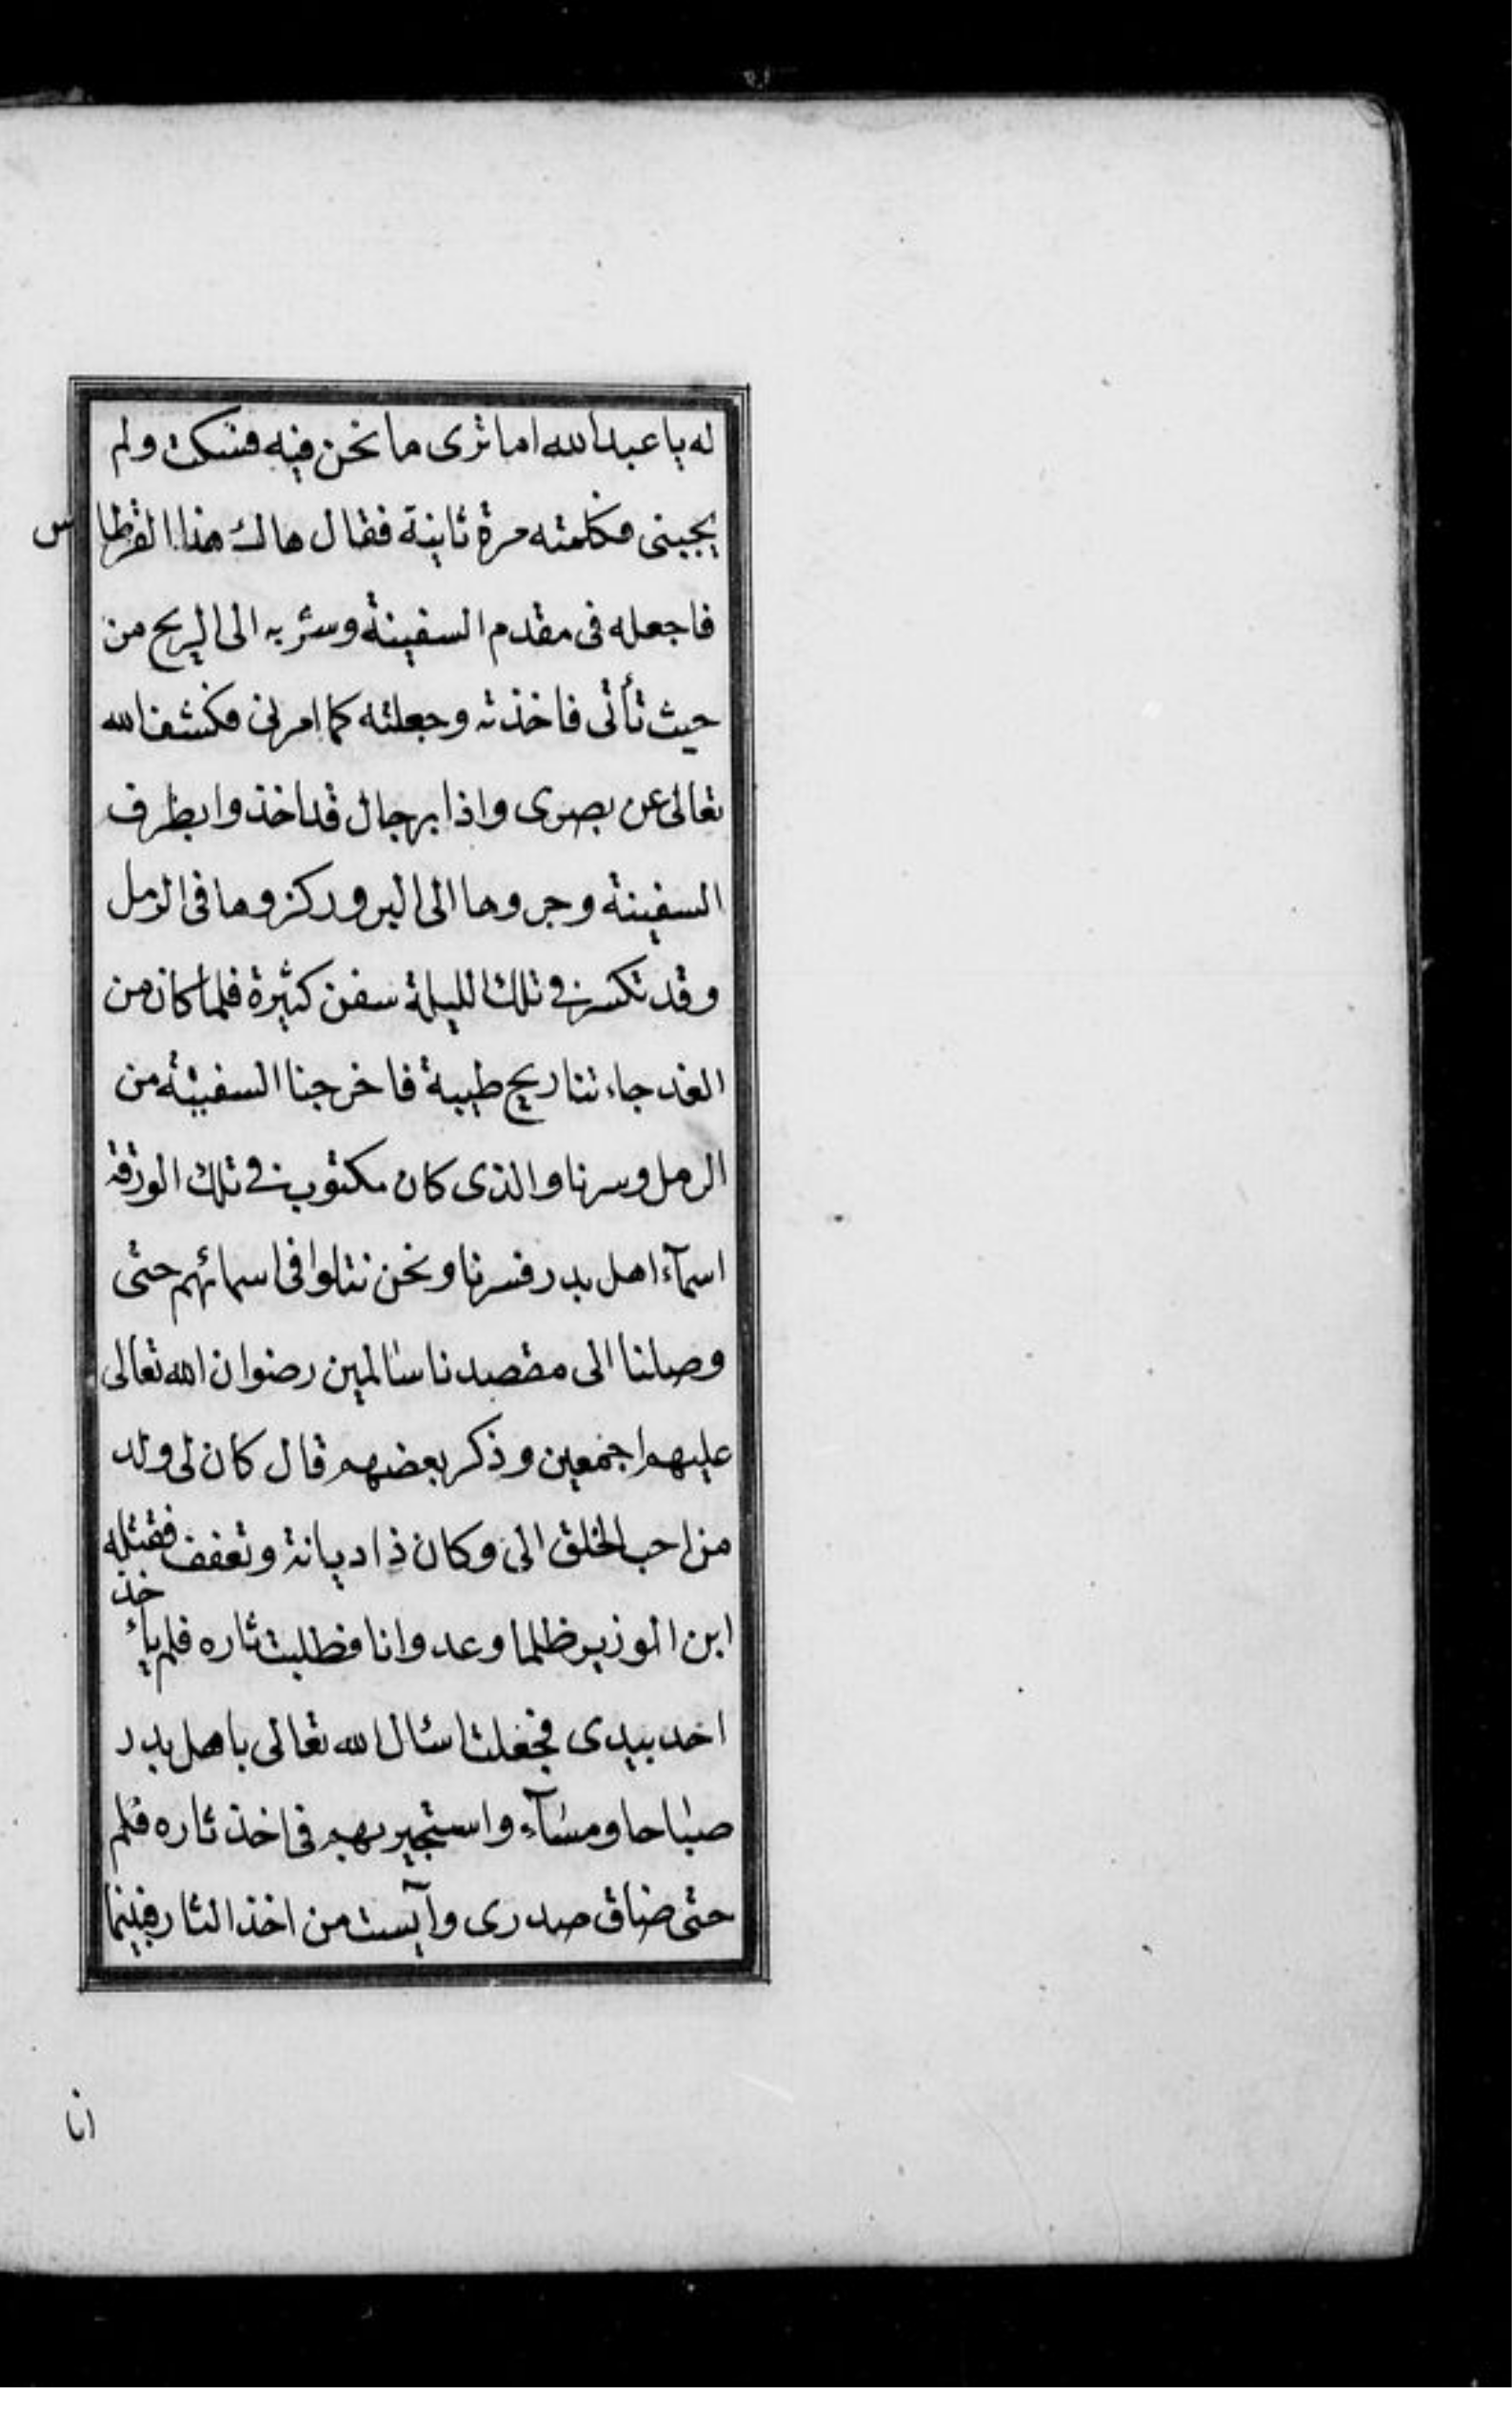 له يا عبدالله اما ترى ما نحن فيه فسكت ولم
يجبنى فكلمته مرة ثانية فقال هاك هذا القرطاس
فاجعله فى مقدم السفينة وسر به الى الريح من
حيث تأتى فاخذته وجعلته كما امرنى فكشف الله
تعالى عن بصرى واذا برجال قد اخذوا بطرف
السفينة وجروها الى البر وركزوها فى الرمل
وقد تكسر فى تلك الليلة سفن كثيرة فلما كان من
الغد جاءتنا ريح طيبة فاخرجنا السفينة من
الرمل وسرنا والذى كان مكتوب فى تلك الورقة
اسمآء اهل بدر فسرنا ونحن نتلوا فى اسمائهم حتى
وصلنا الى مقصدنا سالمين رضوان الله تعالى
عليهم اجمعين وذكر بعضهم قال كان لى ولد
من احب الخلق الى وكان ذا ديانة وتعفف فقتله
ابن الوزير ظلما وعدوانا فطلبت ثاره فلم يأخذ
احد بيدى فجعلت اسئال الله تعالى باهل بدر
صباحا ومسآء واستجير بهم فى اخذ ثاره فلم
حتى ضاق صدرى وآيست من اخذ الثار فبينما
انا